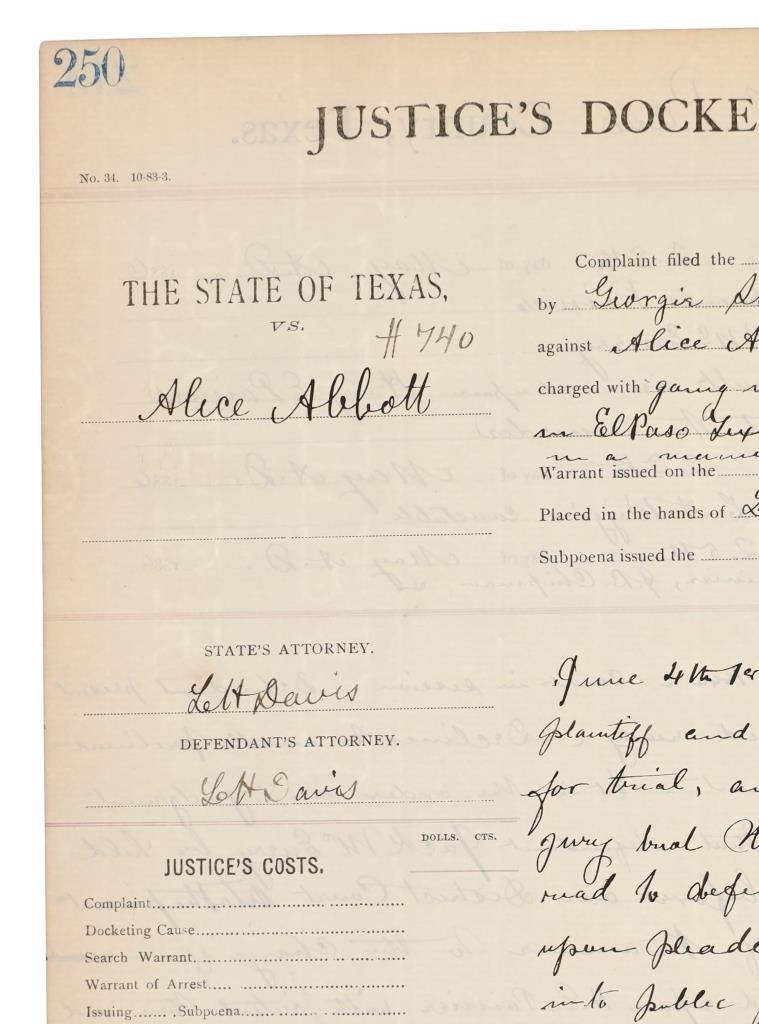 250
JUSTICE'S DOCKE
No. 34. 10-83-3.
THE STATE OF TEXAS,
VS.
# 740
Alice Abbott
Complaint filed the
by Georgie
against Alice A
charged with going
in El Paso Tex
in a
Warrant issued on the
Placed in the hands of
Subpoena issued the
STATE'S ATTORNEY.
L H Davis
DEFENDANT'S ATTORNEY.
L H Davis
DOLLS. CTS.
JUSTICE'S COSTS.
Complaint
Docketing Cause
Search Warrant
Warrant of Arrest
Issuing Subpoena
June 4th
plaintiff and
for trial,
jury
to defe
upon pleade
into public